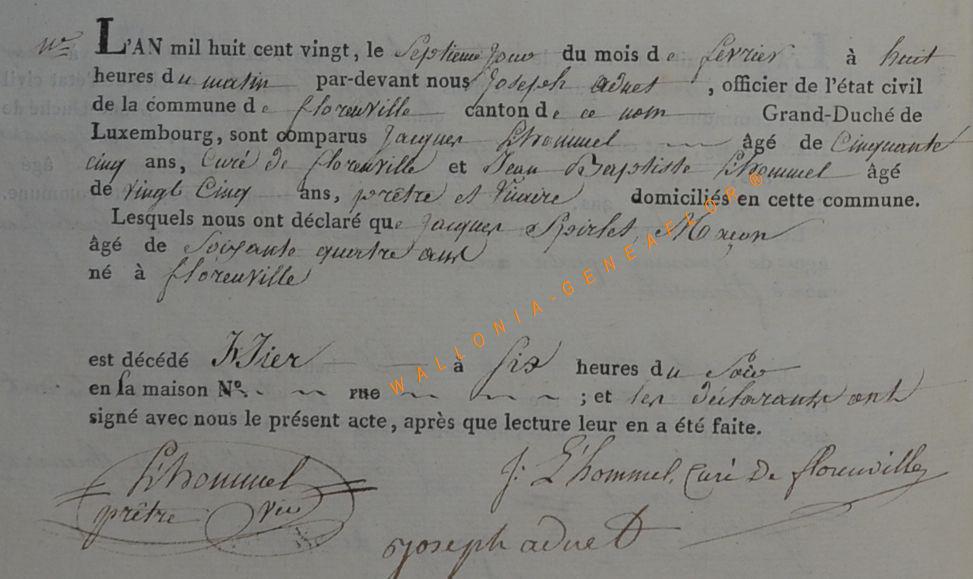 L'AN mil huit cent vingt, le Septieme jour du mois de fevrier à huit
heures du matin par-devant nous Joseph aduet, officier de l'état civil
de la commune de florenville canton de ce nom Grand-Duché de
Luxembourg, sont comparus Jacques L'hommel âgé de Cinquante
cinq ans, Curé de florenville et Jean Baptiste L'hommel âgé
de vingt Cinq ans, prêtre et Vicaire domiciliés en cette commune.
Lesquels nous ont déclaré que Jacques Spirlet, Maçon
âgé de Soixante quatre ans
né à florenville
est décédé hier à Six heures du Soir
en sa maison N°. rue ; et les déclarants ont
signé avec nous le présent acte, après que lecture leur en a été faite.
L'hommel J. L'hommel, Curé De florenville
prêtre vic
Joseph aduet
WALLONIA-GENEAELOR®